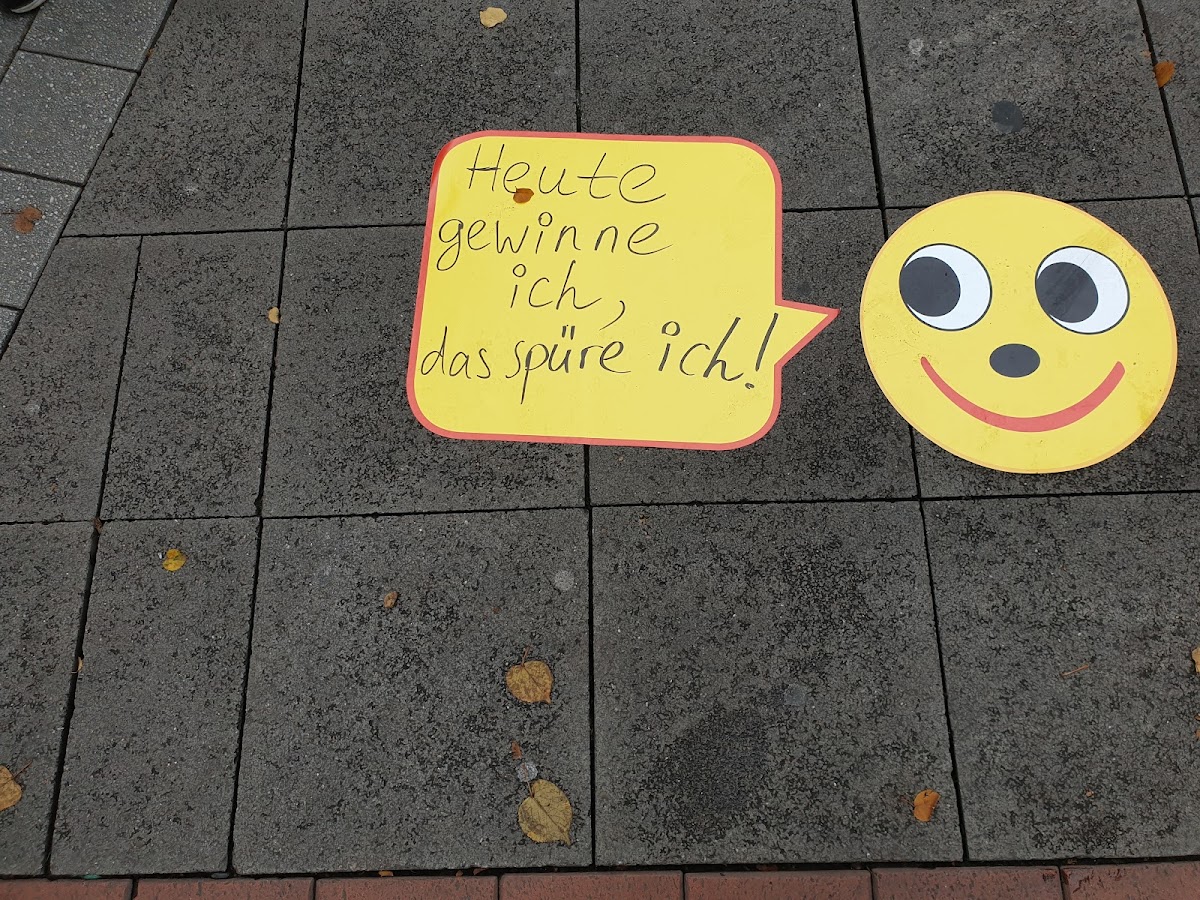 Heute
gewinne
ich,
das spüre ich!